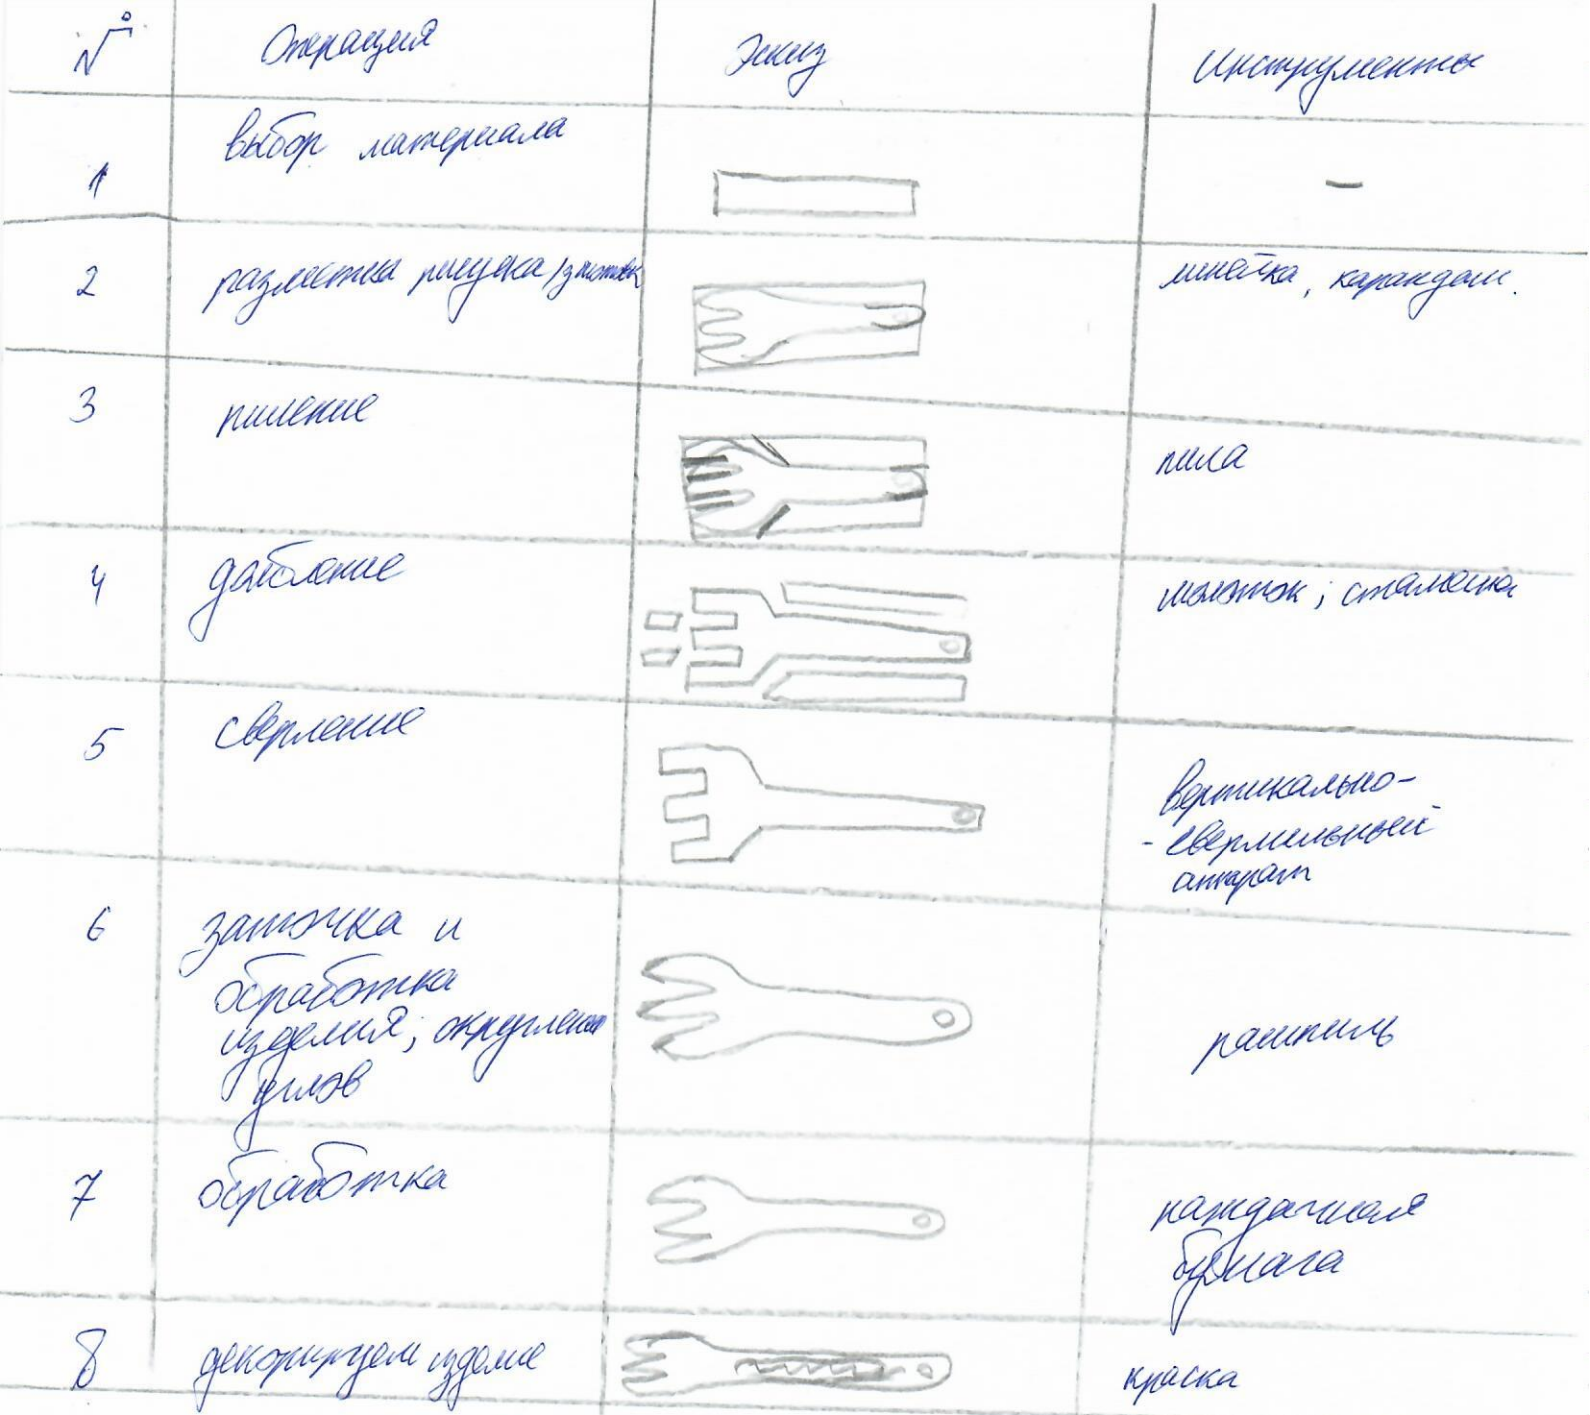 № Операция Эскиз Инструменты
1 выбор материала –
2 разметка рисунка/ линейка, карандаш.
3 пиление пила
4 долбление молоток; стамеска
5 сверление вертикально-
-сверлильный
аппарат
6 заточка и
обработка
изделия; округление
углов
рашпиль
7 обработка наждачная
бумага
8 декорируем изделие краска